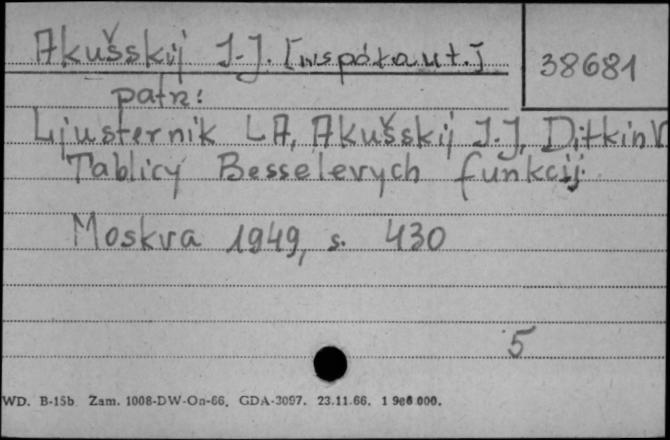 Akušskij J.J. [współaut.]
38681
patrz:
Ljusternik LA, Akušskij J.J, Ditkin V
Tablicy Besselevych funkcij
Moskva 1949, s. 430
5
WD. B-15b Zam. 1008-DW-On-66. GDA-3097. 23.11.66. 1 900 000.